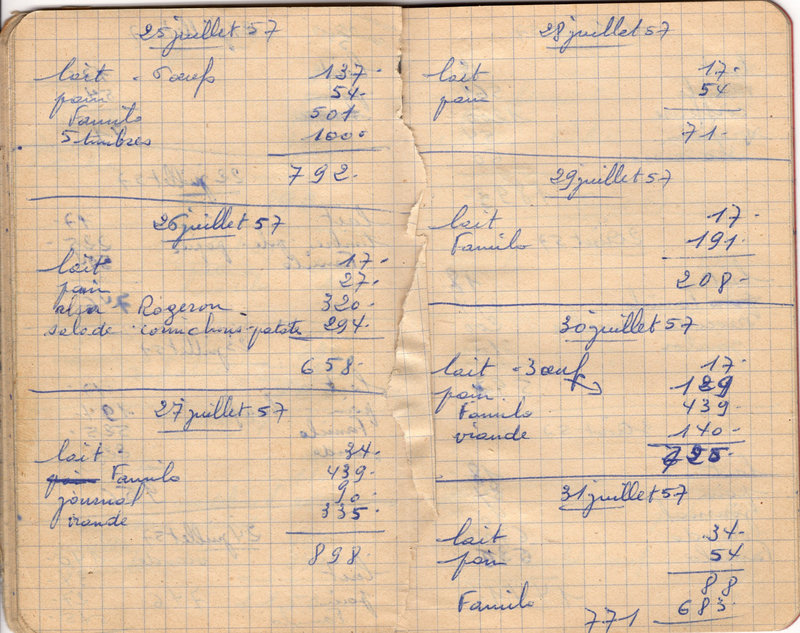 25 juillet 57
lait - oeufs 137-
pain 54-
Familo 501
5 timbres 100-
792-
26 juillet 57
lait 17-
pain 27-
Rozeron 320-
salade - cornichons - patate 294-
658-
27 juillet 57
lait 34-
Familo 439-
journal 90-
viande 335-
898-
28 juillet 57
lait 17-
pain 54
71-
29 juillet 57
lait 17-
Familo 191-
208-
30 juillet 57
lait - 3 œuf 17-
pain 129
Familo 439-
viande 140-
725-
31 juillet 57
lait 34-
pain 54
88
Familo 683-
771